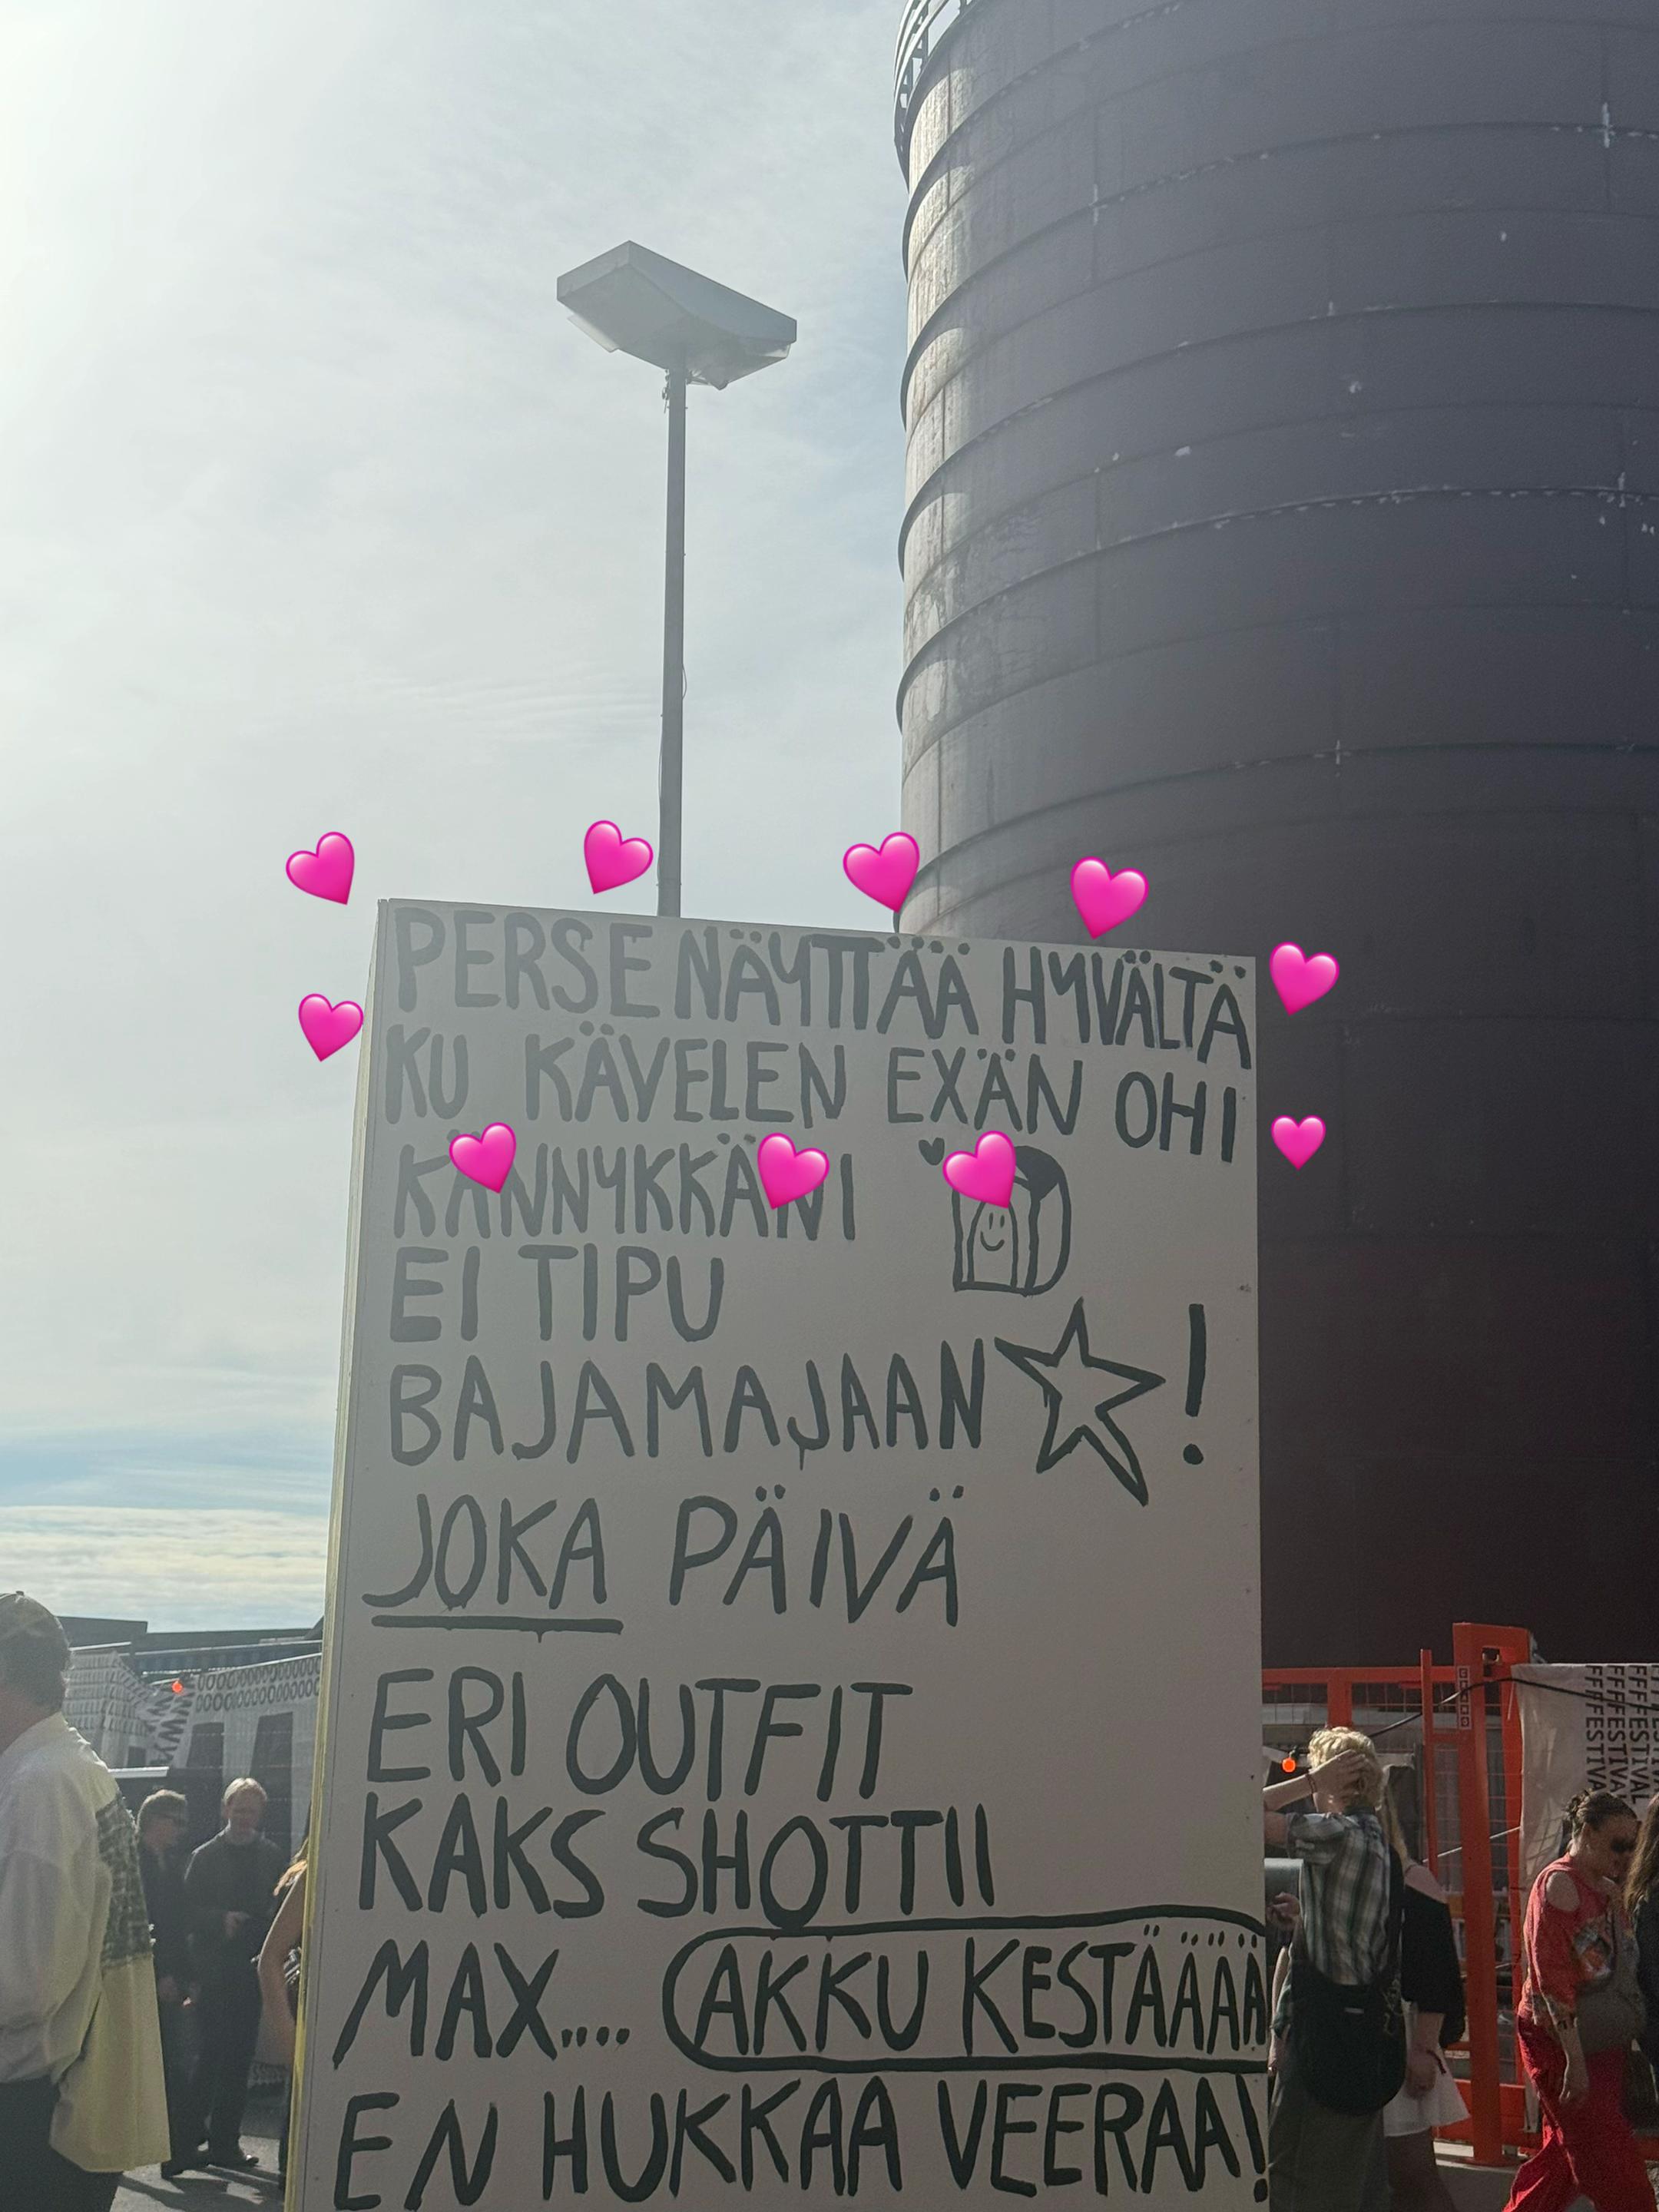 PERSE NÄYTTÄÄ HYVÄLTÄ
KU KÄVELEN EXÄN OHI
KÄNNYKKÄNI
EI TIPU
BAJAMAJAAN!
JOKA PÄIVÄ
ERI OUTFIT
KAKS SHOTTII
MAX.... AKKU KESTÄÄÄÄ
EN HUKKAA VEERAA!
FESTIVAL
FESTIVAL
FESTIVAL